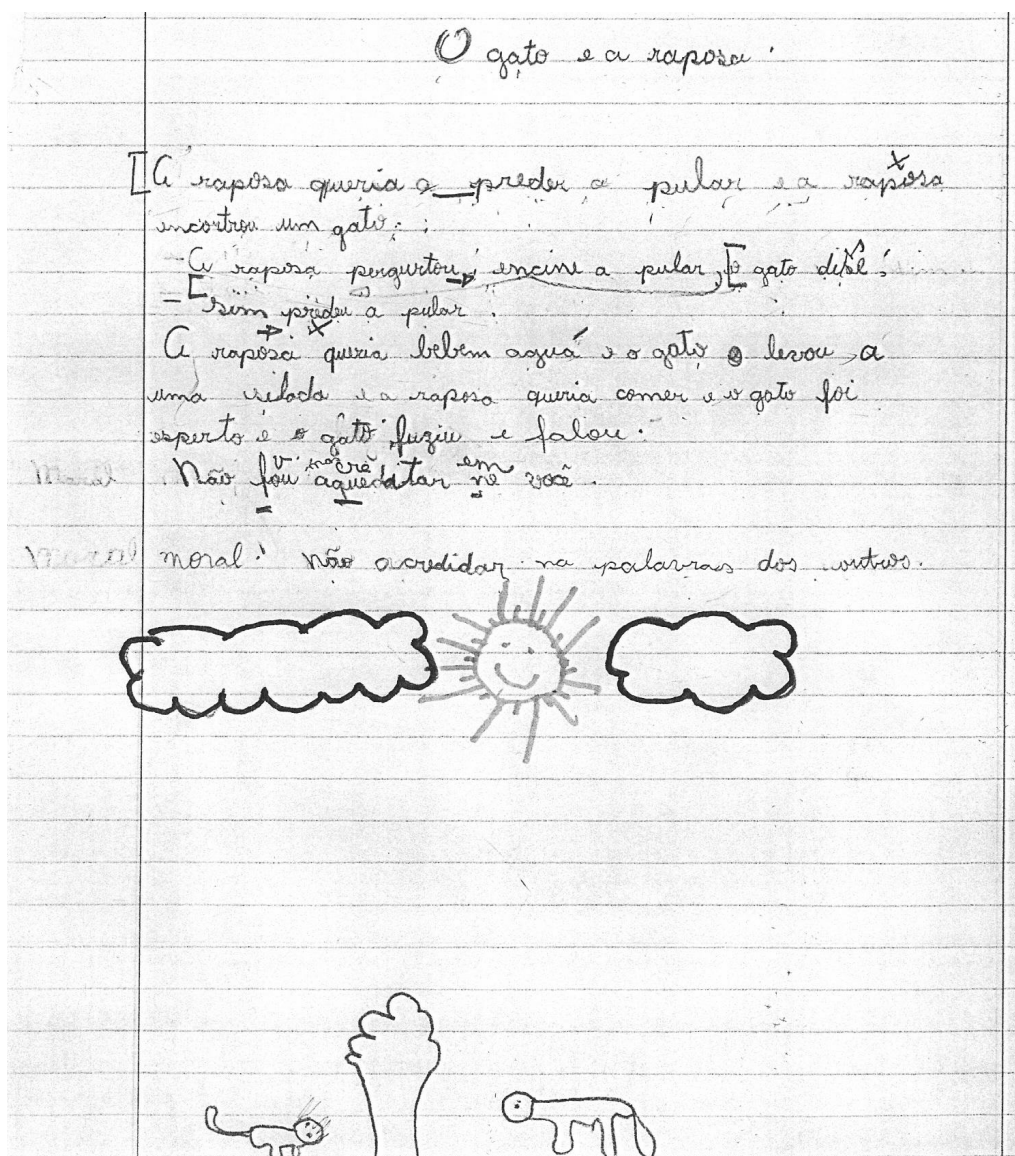 O gato e a raposa.
A raposa queria a preder a pular e a raposa
encortrou um gato.
- A raposa pergurtou, encine a pular, o gato dise:
- Sim predeu a pular.
A raposa queria bebem aguá e o gato o levou a
uma e a raposa queria comer e o gato foi
esperto e o gato fuziu e falou.
Não fou aqueditar ne você.
moral: não acredidar na palavras dos outros.